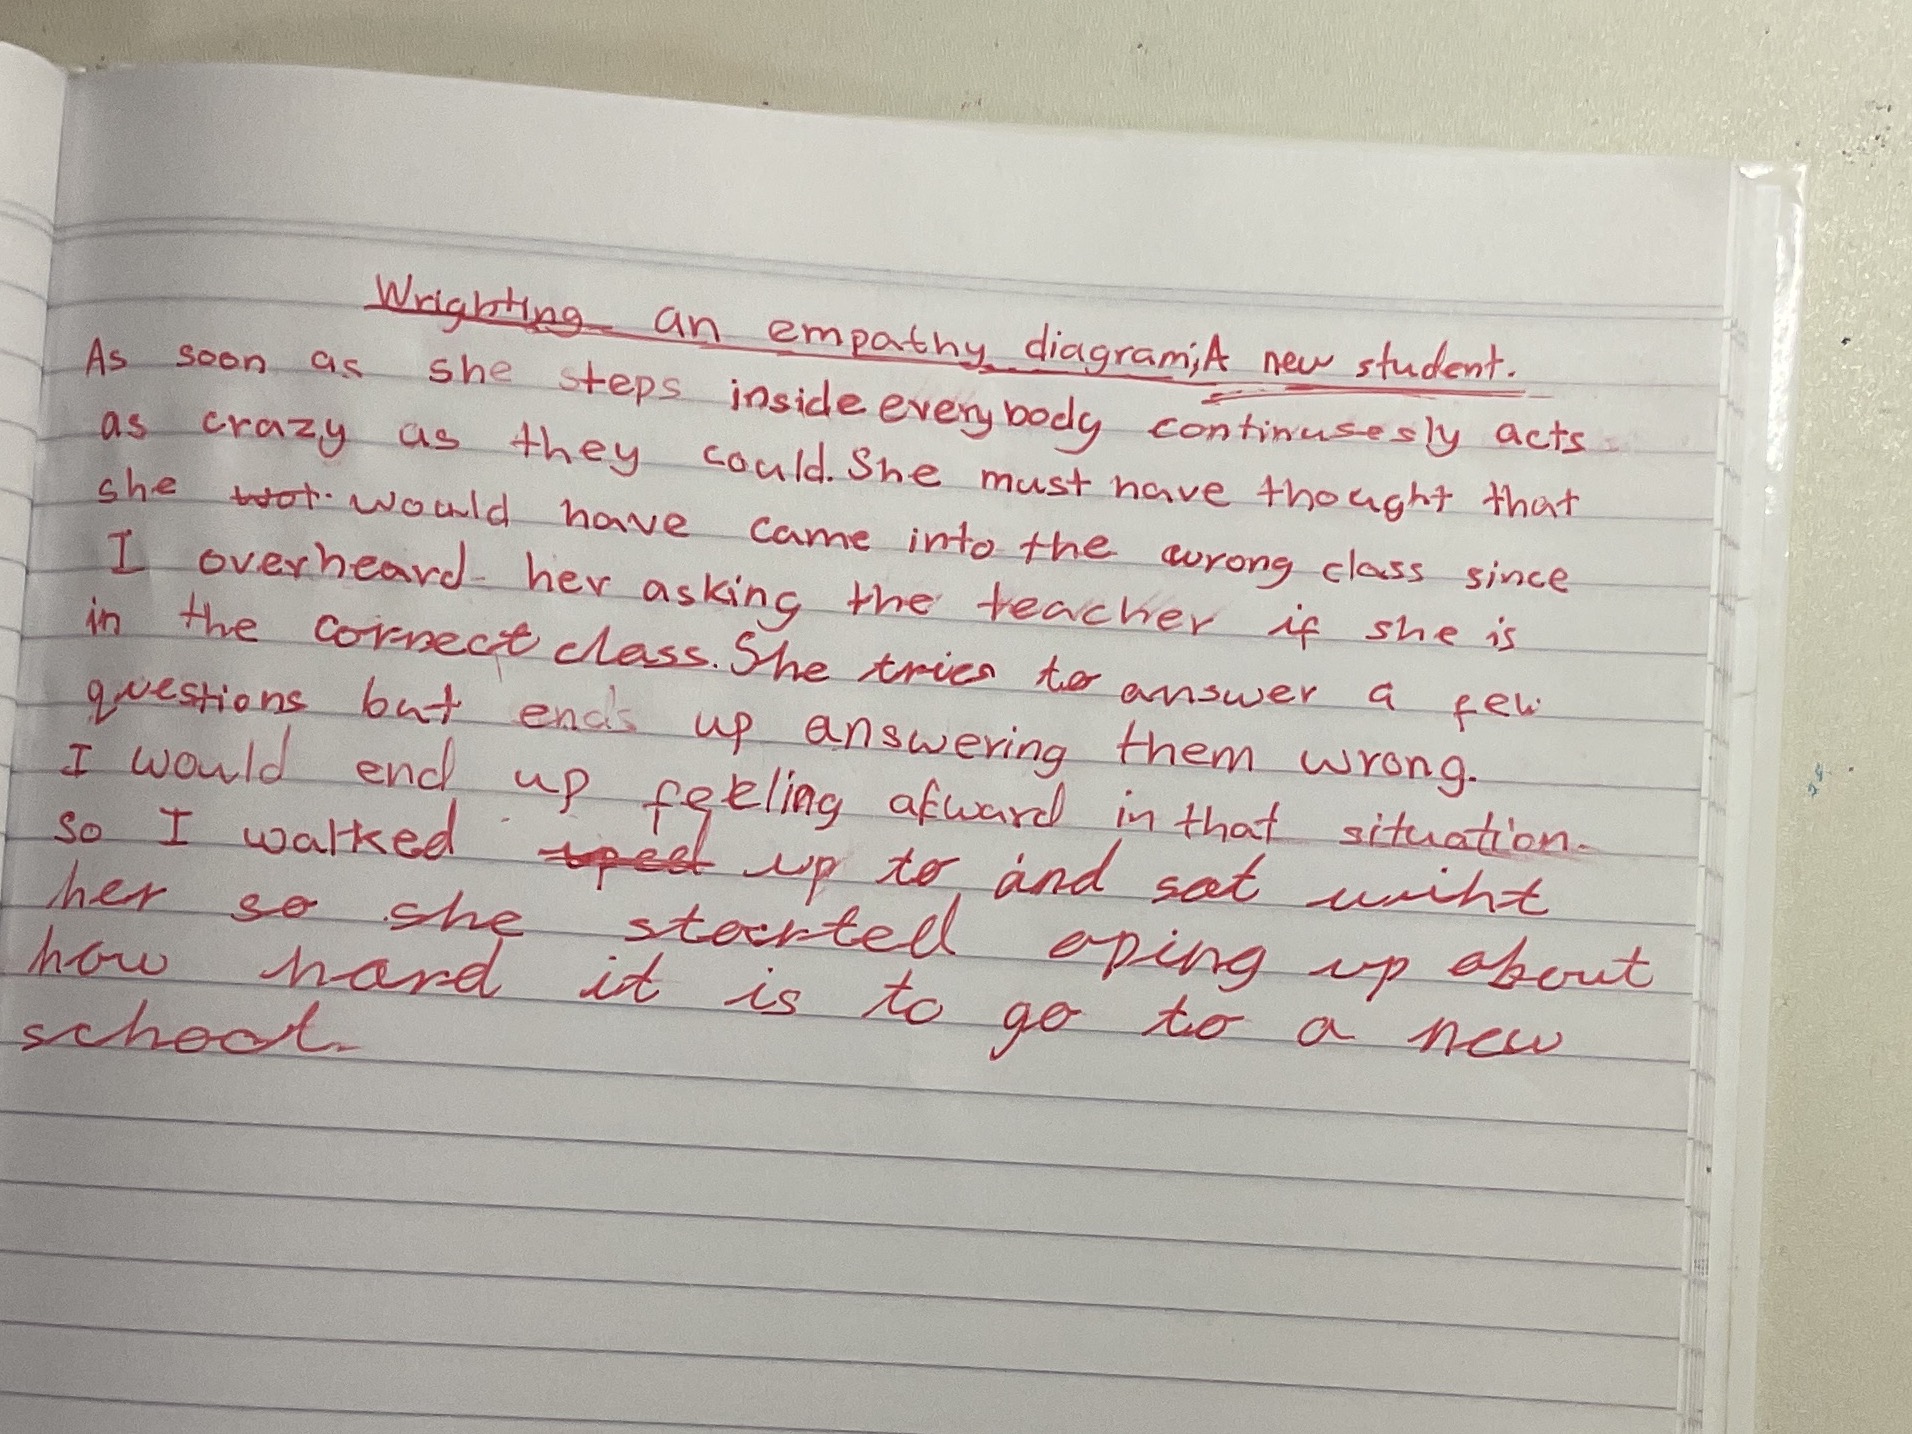 Wrighting an empathy diagram; A new student.
As soon as she steps inside everybody continusesly acts
as crazy as they could. She must have thought that
she would have came into the wrong class since
I overheard her asking the teacher if she is
in the correct class. She tries to answer a few
questions but ends up answering them wrong.
I would end up feeling afward in that situation.
so I walked up to and sat wiht
her so she started oping up about
how hard it is to go to a new
school.